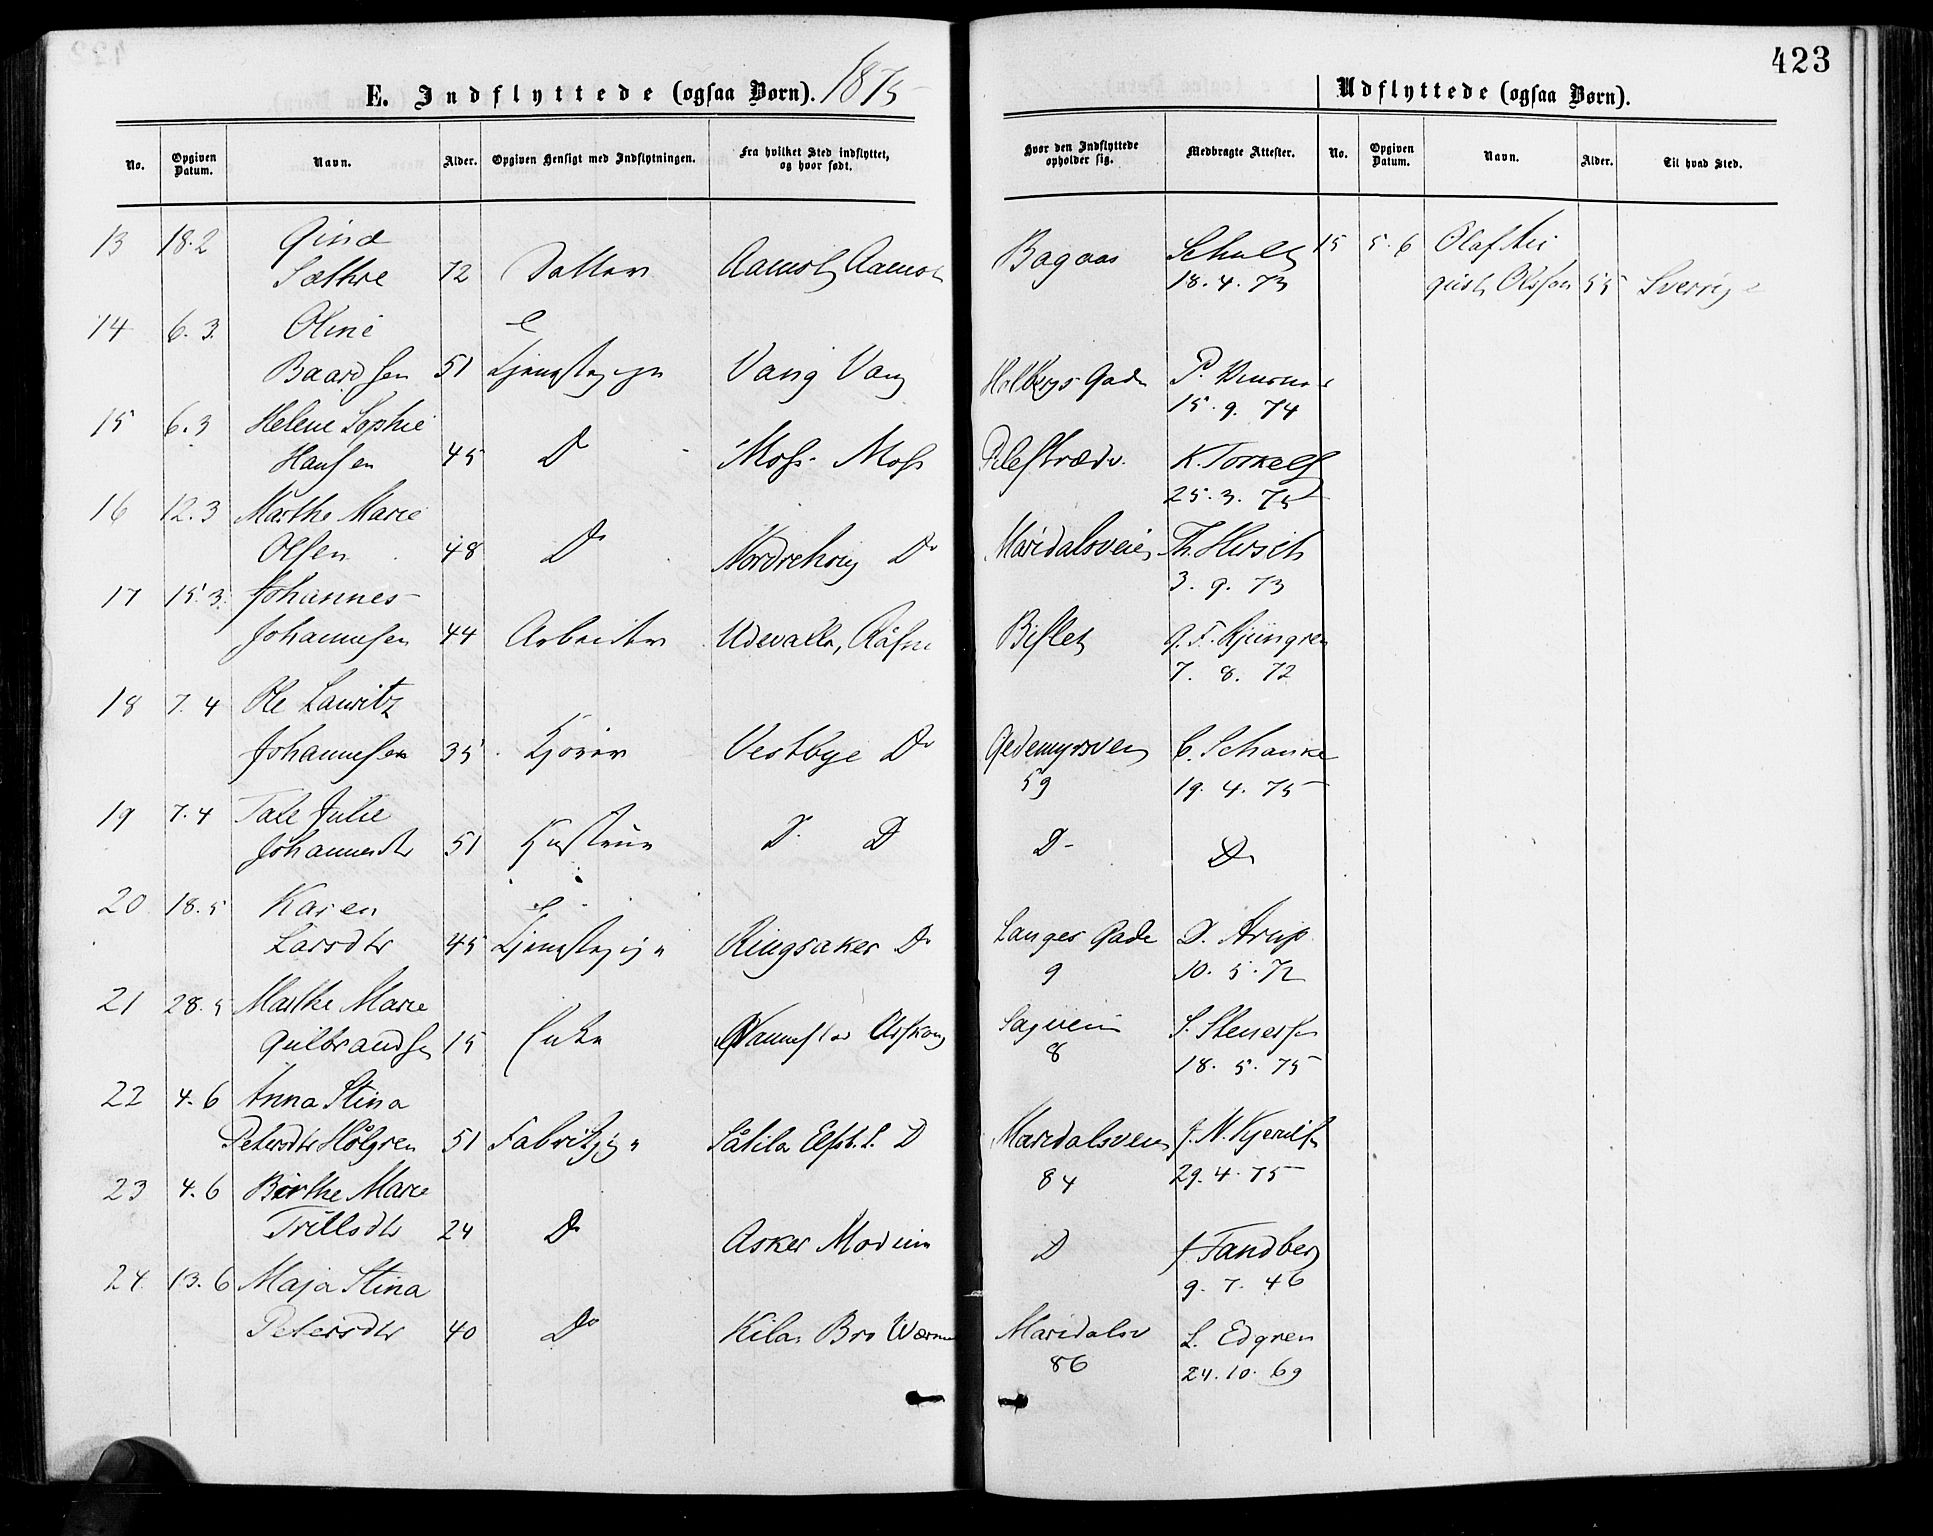 423
E. Indflyttede (ogsaa Børn). 1875
Udflyttede (ogsaa Børn).
No. Opgiven Datum. Navn. Alder. Opgiven Hensigt med Indflytningen. Fra hvilket Sted indflyttet, og hvor født. Hvor den Indflyttede opholder sig. Medbragte Attester. No. Opgiven Datum. Navn. Alder. Til hvad Sted.
13 18.2 Bagaas 15 5.6 Olaf
Sæthre 72 Datter Aamot Aamot 18.4.73 Olsson 55 Sverig
14 6.3 Oline
Baardsen 51 Tjenestepige Vang Vang Holbergs Gade P.
15.9.74
15 6.3 Helene Sophie
Hansen 45 D Moss Moss Pilestræde K. Torkels
25.3.75
16 12.3 Marthe Marie
Olsen 48 Do Nordrehoug Do Maridalsveien Th. Hirsch
3.9.73
17 15.3. Johannes
Johannesen 44 Arbeider Udevalla, Bislet Ljungren
7.8.72
18 7.4 Ole Lauritz
Johannesen 35 Kjører Vestbye Do Gedemyrsvei C. Schanke
59 19.4.75
19 7.4 Tale Julie
Johannesdtr 51 Hustru D. D D- Do
20 18.5 Karen
Larsdtr 45 Tjenestepige Ringsaker Do Langes Gade D. Arup
9 10.5.72
21 28.5 Marthe Marie
Gulbrandsen 15 Enke Sagveien S. Stenersen
8 18.5.75
22 4.6 Anna Stina
Petersdtr Hólgren 51 Fabrikpige Såtila Elfsb. L. D Maridalsveien J. N.
84 29.4.75
23 4.6 Birthe Marie
Trulsdtr 24 Do Asker Modum D J. Tandberg
9.7.46
24 13.6 Maja Stina
Petersdtr 40 Do Kila Bro Wærm Maridalsv L. Edgren
86 24.10.69